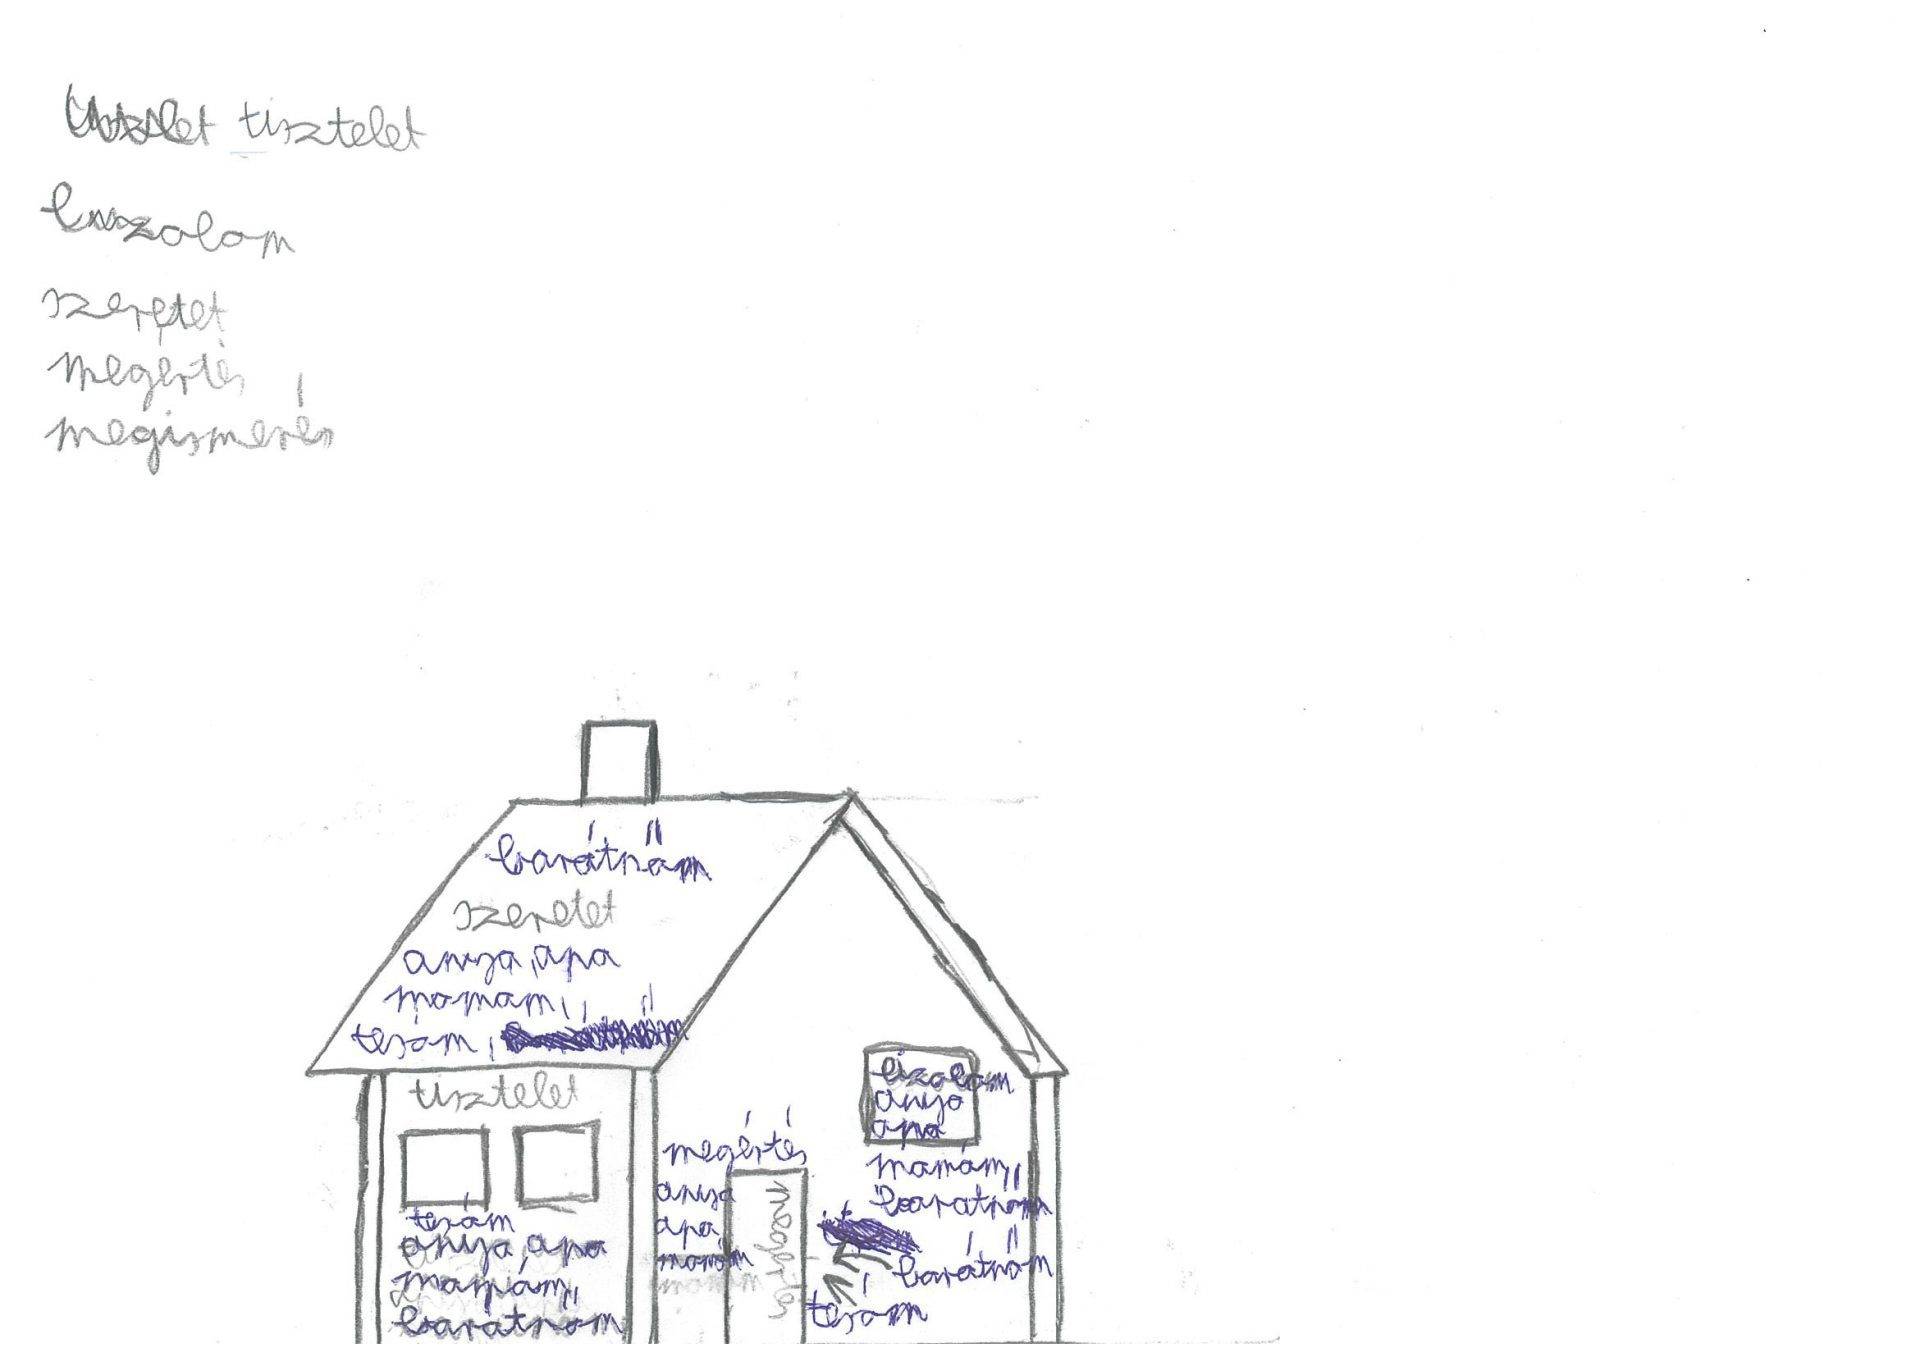 tisztelet
bizalom
szeretet
megértés
megismerés
barátnőm
szeretet
anya, apa
mamám,
tesóm,
tisztelet
tesóm
anya, apa
mamám,
barátnőm
megértés
anya
apa
mamám
megértés
bizalom
anya
apa
mamám,
barátnőm
barátnőm
tesóm